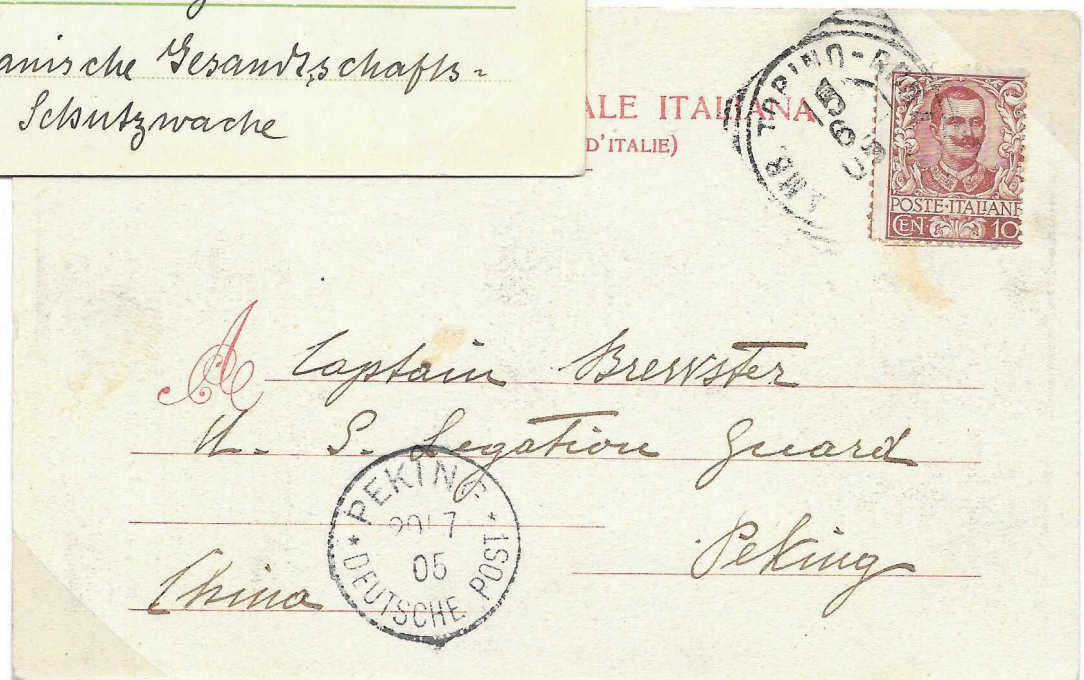 anische Gesandtschafts-
Schutzwache
ALE ITALIANA
D'ITALIE)
AMB. TORINO-
POSTE·ITALIANE
CEN 10
A Captain Brewster
U. S. Legation Guard
Peking
China
* PEKING *
7
05
DEUTSCHE POST